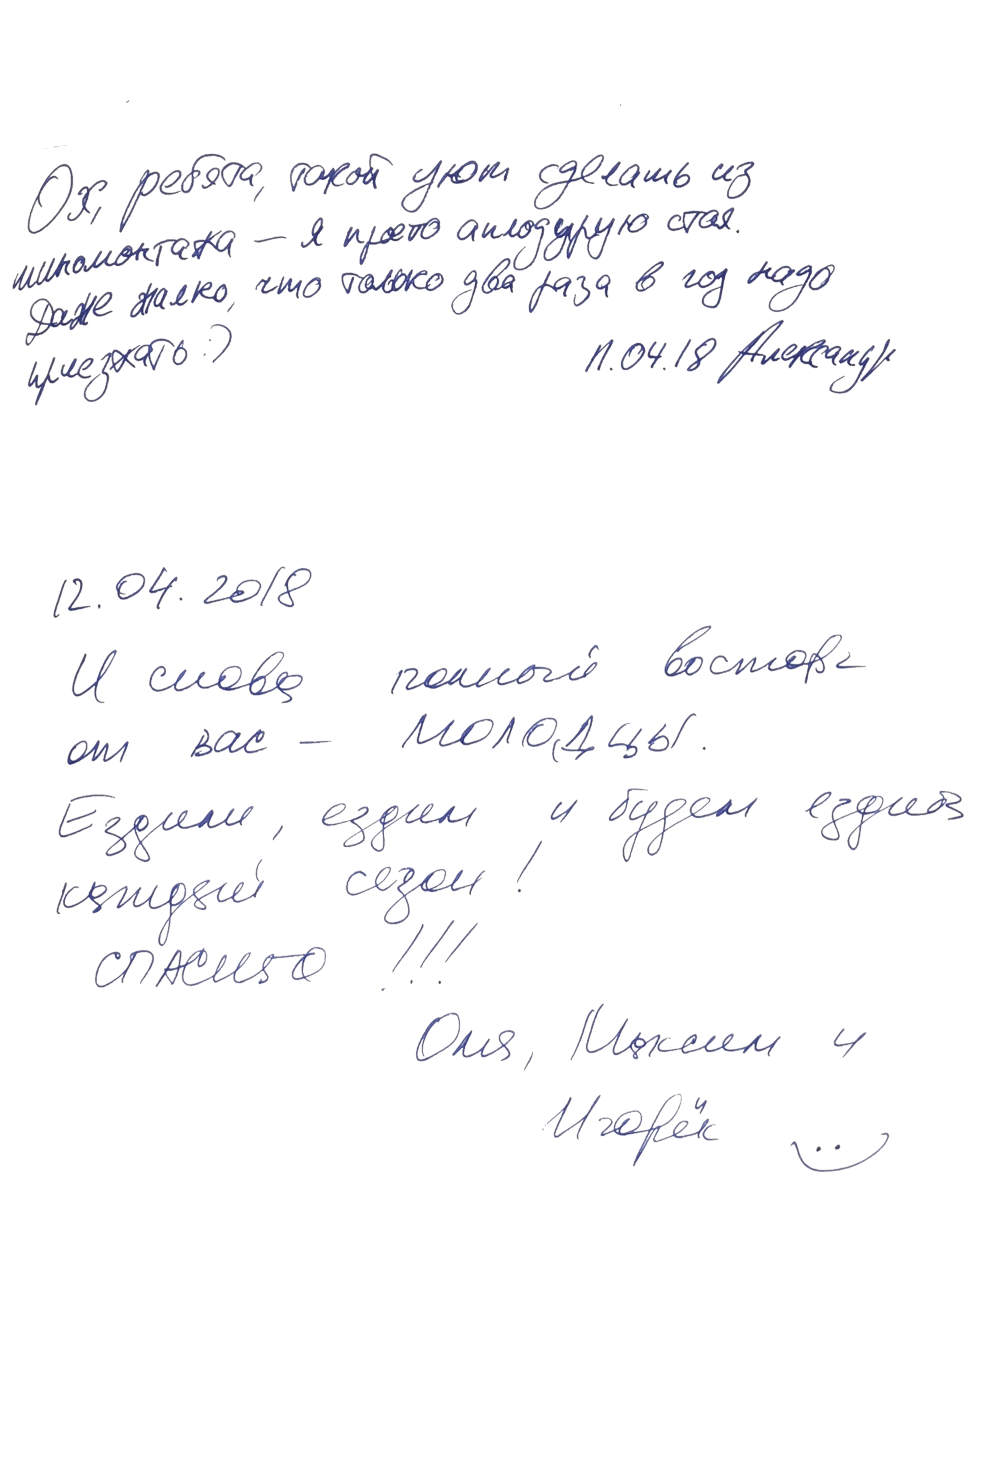 Ох, ребята, такой уют сделать из
шиномонтажа — я просто аплодирую стоя.
Даже жалко, что только два раза в год надо
приезжать :)
11.04.18 Александр
12.04.2018
И снова полный восторг
от вас — МОЛОДЦЫ.
Ездили, ездим и будем ездить
каждый сезон!
СПАСИБО !!!
Оля, Максим и
Игорёк